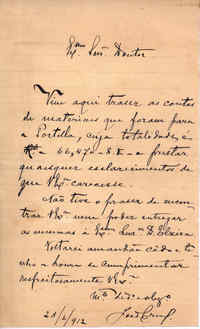 Exmo Snr. Doutor
Vim aqui trazer as contas
de materiaes que foram para
a Portella, cuja totalidade é
e a prestar
quaesquer esclarecimentos de
que VExª carecesse.
Não tive o prazer de encon-
trar VExª nem poder entregar
as mesmas á Exma Snra D. Elzira
Voltarei amanhã cedo e te-
nho a honra de cumprimentar
respeitosamente VExª
21/6/912